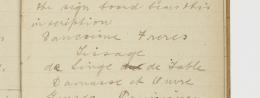 the sign board bears this
inscription
Freres
Tissage
de Linge de Table
Damassé et Ouvré